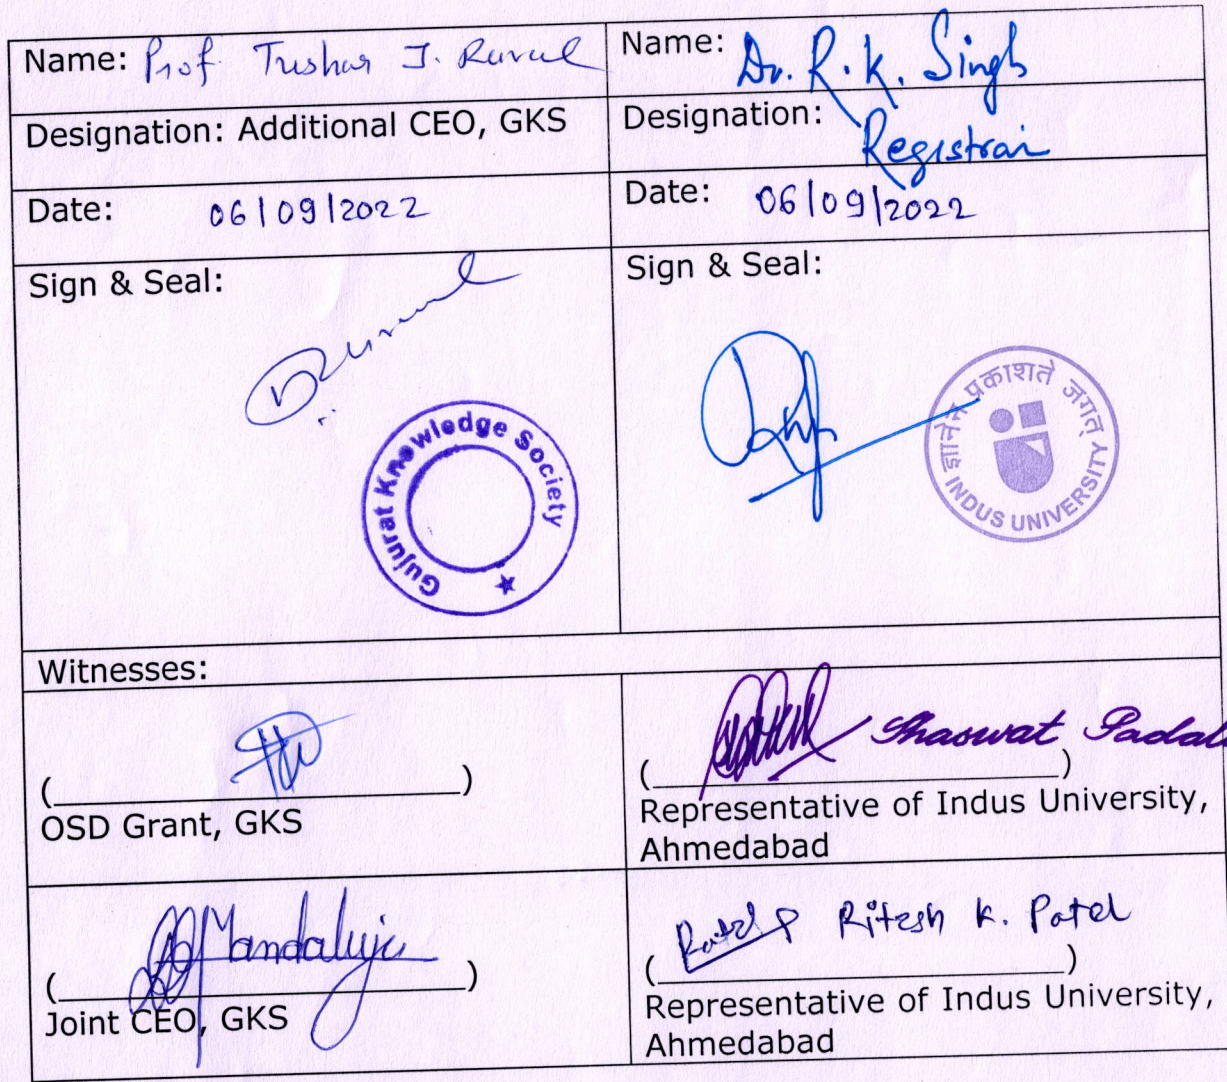 Name: Prof Tushar J. Raval
Name: Dr. R. K. Singh
Designation: Additional CEO, GKS
Designation: Registrar
Date: 06/09/2022
Date: 06/09/2022
Sign & Seal:
Sign & Seal:
Gujurat Knowledge Society
ज्ञानेन प्रकाशते जगत्
INDUS UNIVERSITY
Witnesses:
( )
OSD Grant, GKS
Shaswat
( )
Representative of Indus University,
Ahmedabad
( )
Joint CEO, GKS
Patel Ritesh K. Patel
( )
Representative of Indus University,
Ahmedabad